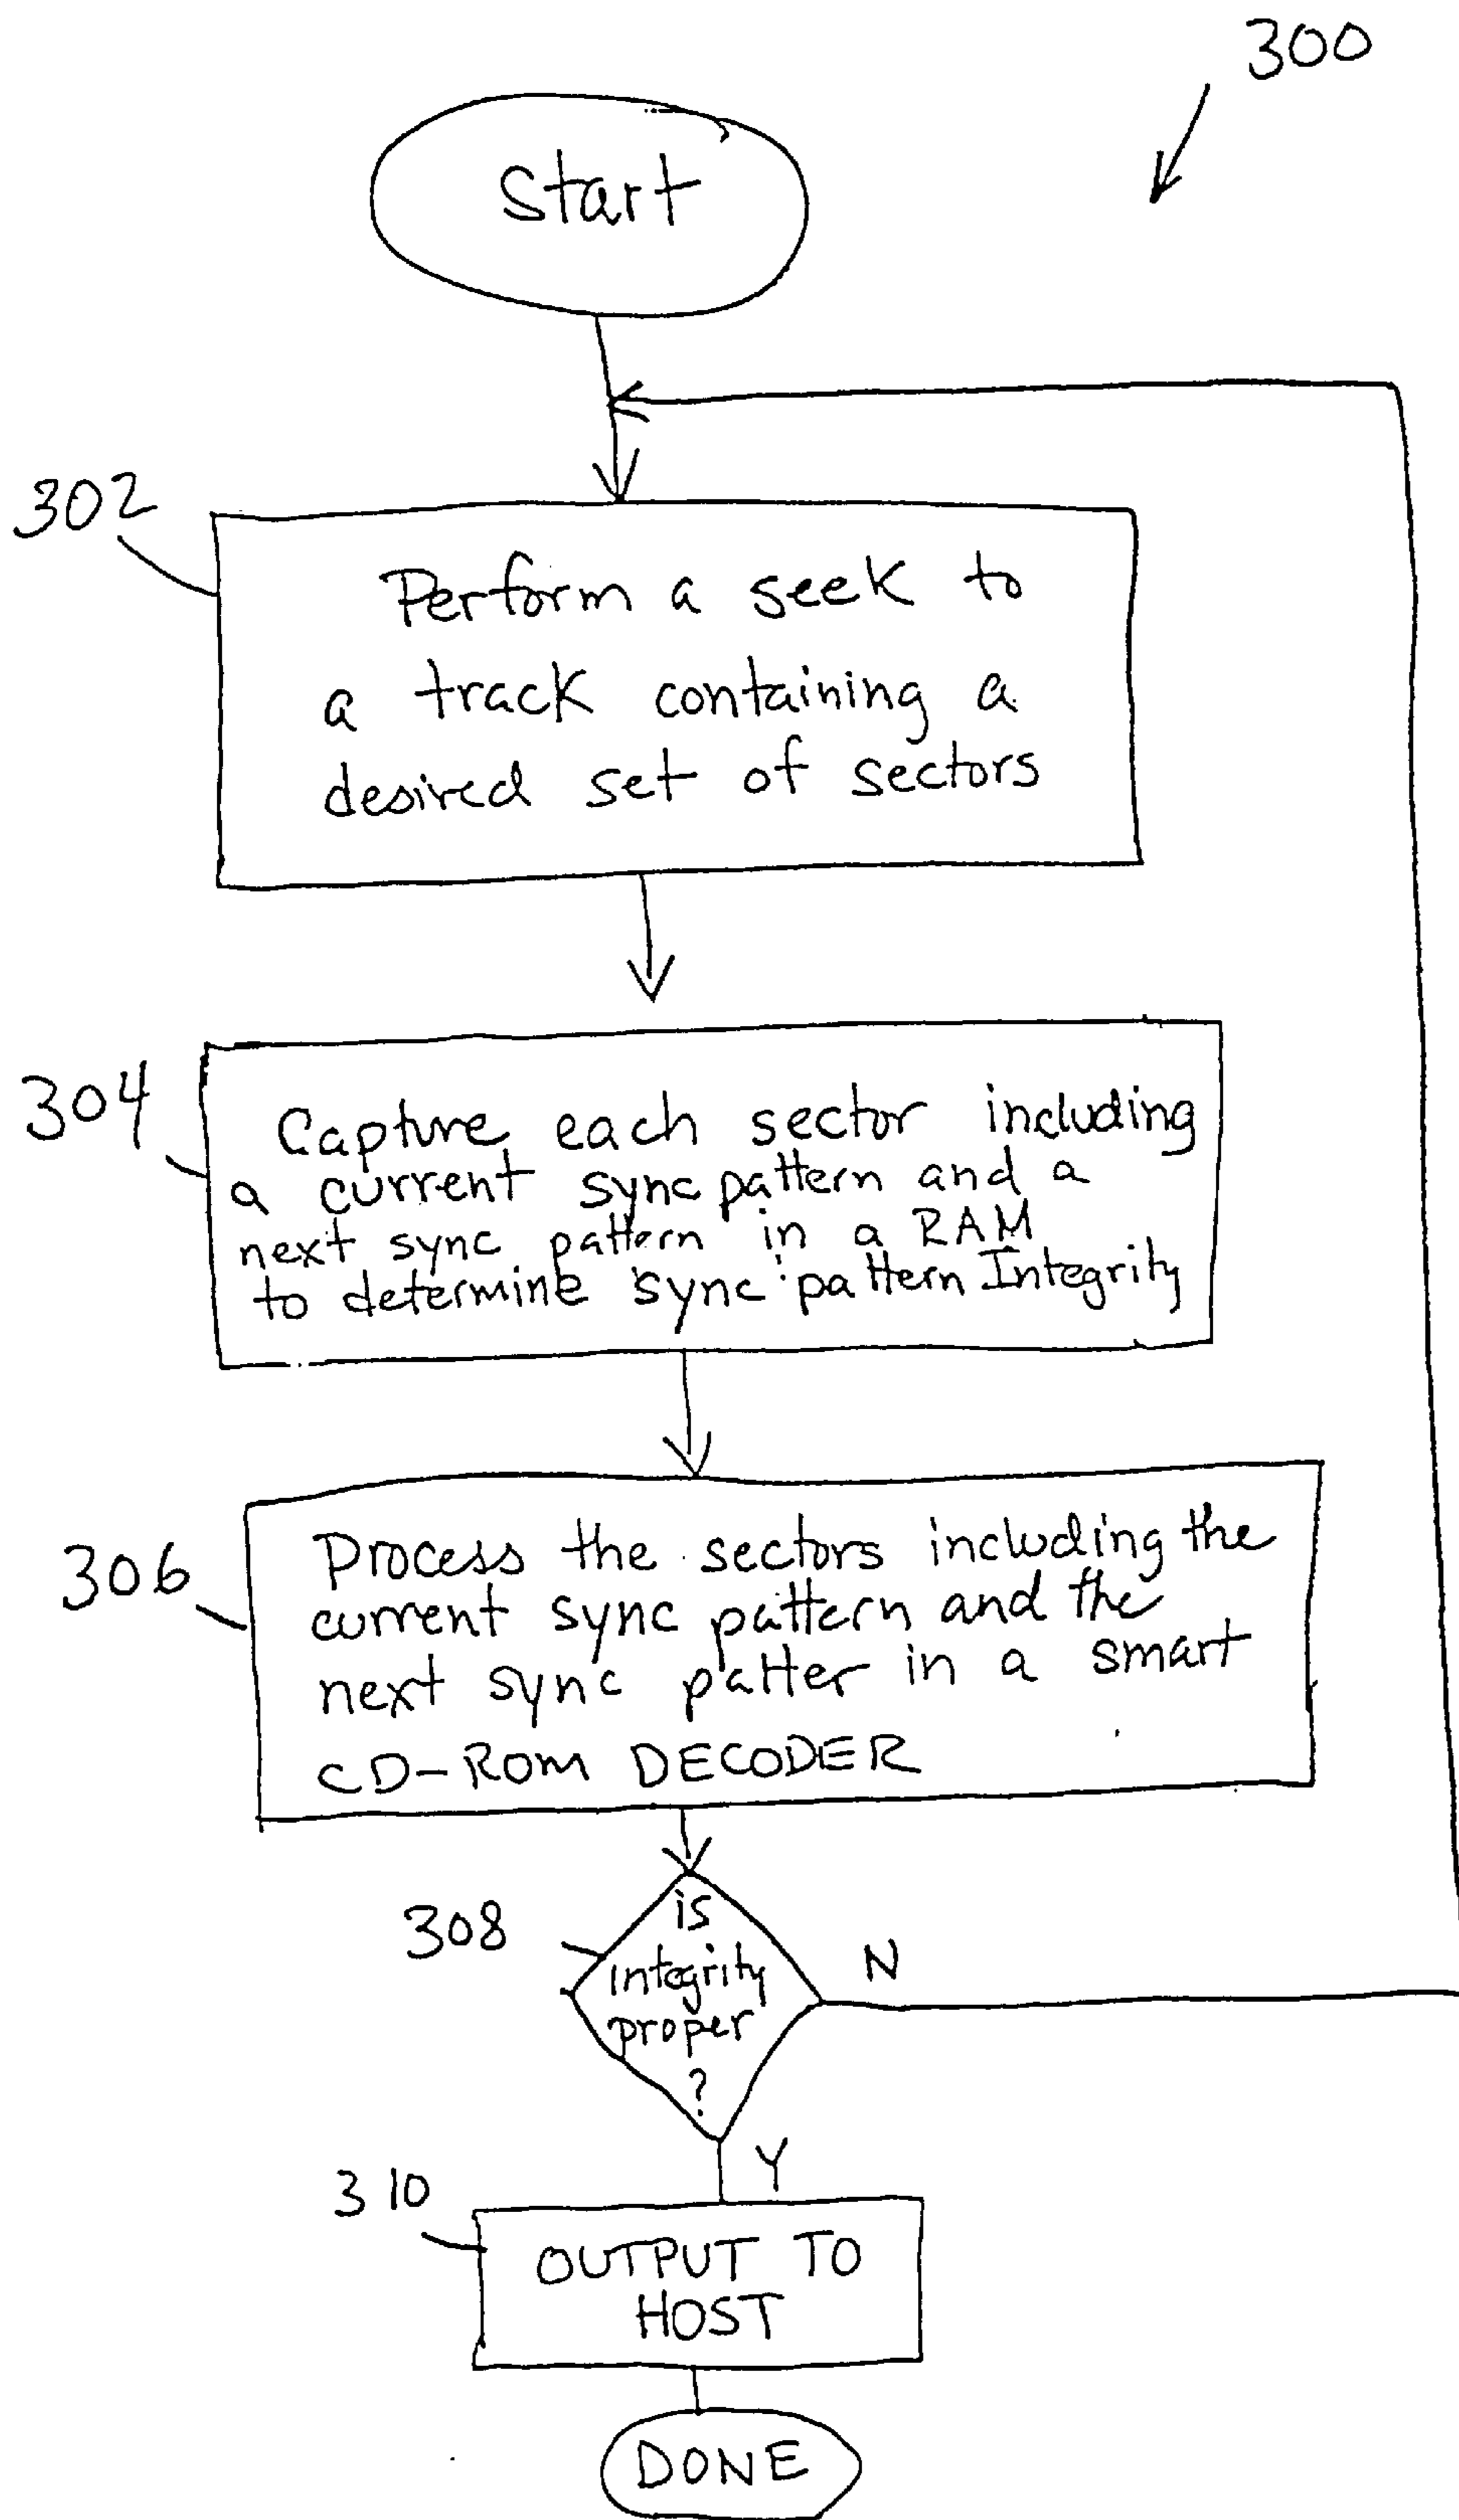 300
Start
302
Perform a seek to
a track containing a
desired set of sectors
304
Capture each sector including
a current sync pattern and a
next sync pattern in a RAM
to determine sync pattern Integrity
306
Process the sectors including the
current sync pattern and the
next sync patter in a smart
CD-ROM DECODER
308
is
integrity
proper
?
N
Y
310
OUTPUT TO
HOST
DONE